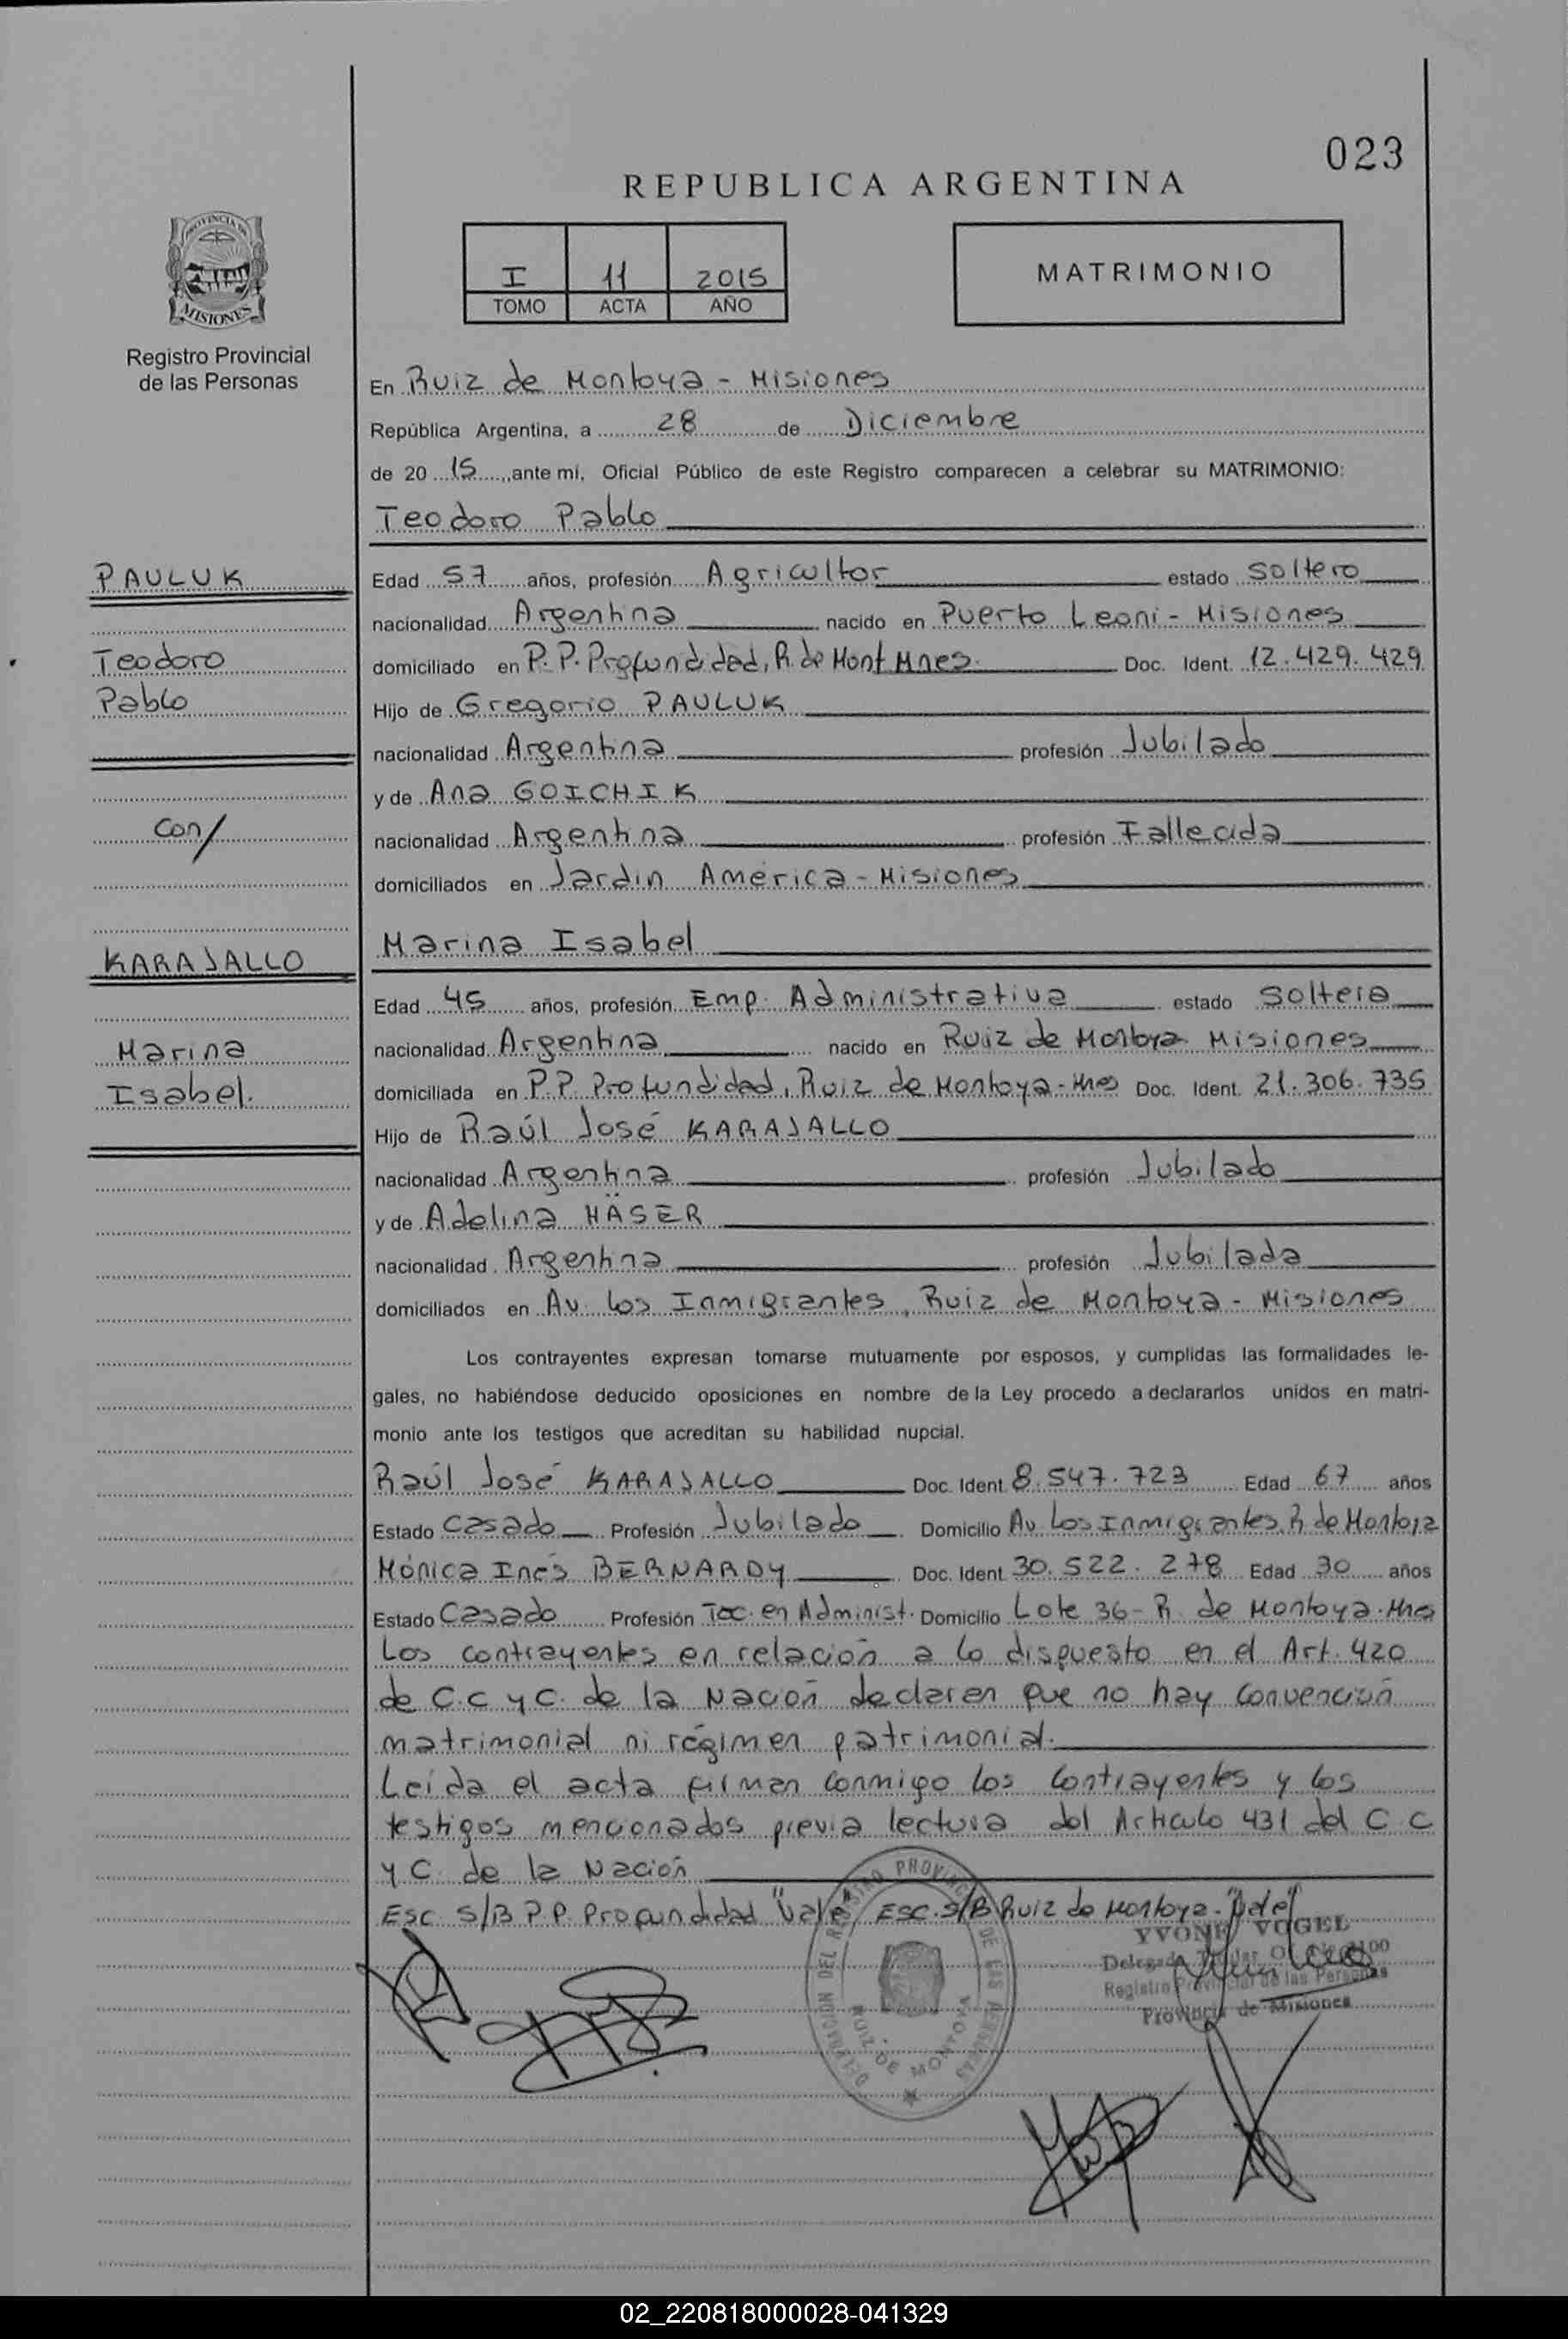 023
REPUBLICA ARGENTINA
PROVINCIA DE
MISIONES
Registro Provincial
de las Personas
I 11 2015
TOMO ACTA AÑO
MATRIMONIO
En Ruiz de Montoya - Misiones
República Argentina, a 28 de Diciembre
de 20 15, ante mí, Oficial Público de este Registro comparecen a celebrar su MATRIMONIO:
Teodoro Pablo
PAULUK
Teodoro
Pablo
con/
KARAJALLO
Marina
Isabel.
Edad 57 años, profesión Agricultor estado Soltero
nacionalidad Argentina nacido en Puerto Leoni - Misiones
domiciliado en P.P. Profundidad, R. de Mont Mnes. Doc. Ident. 12.429.429
Hijo de Gregorio PAULUK
nacionalidad Argentina profesión Jubilado
y de Ana GOICHIK
nacionalidad Argentina profesión Fallecida
domiciliados en Jardín América - Misiones
Marina Isabel
Edad 45 años, profesión Emp. Administrativa estado Soltera
nacionalidad Argentina nacido en Ruiz de Montoya Misiones
domiciliada en P.P. Profundidad, Ruiz de Montoya - Mnes Doc. Ident. 21.306.735
Hijo de Raúl José KARAJALLO
nacionalidad Argentina profesión Jubilado
y de Adelina HÄSER
nacionalidad Argentina profesión Jubilada
domiciliados en Av. los Inmigrantes, Ruiz de Montoya - Misiones
Los contrayentes expresan tomarse mutuamente por esposos, y cumplidas las formalidades le-
gales, no habiéndose deducido oposiciones en nombre de la Ley procedo a declararlos unidos en matri-
monio ante los testigos que acreditan su habilidad nupcial.
Raúl José KARAJALLO Doc. Ident 8.547.723 Edad 67 años
Estado Casado Profesión Jubilado Domicilio Av Los Inmigrantes, R de Montoya
Mónica Inés BERNARDY Doc. Ident 30.522.278 Edad 30 años
Estado Casado Profesión Tec. en Administ. Domicilio Lote 36 - R. de Montoya. Mnes
Los contrayentes en relación a lo dispuesto en el Art. 420
de C.C y C. de la Nación declaren que no hay convención
matrimonial ni régimen patrimonial.
Leída el acta firman conmigo los contrayentes y los
testigos mencionados previa lectura del Artículo 431 del C C
y C. de la Nación
Esc. S/B P.P. Profundidad "Vale", Esc. S/B Ruiz de Montoya - "Vale"
DELEGACION DEL REGISTRO PROVINCIAL DE LAS PERSONAS
RUIZ DE MONTOYA
YVONE VOGEL
Delegada Titular
Registro Provincial de las Personas
Provincia de Misiones
02_220818000028-041329